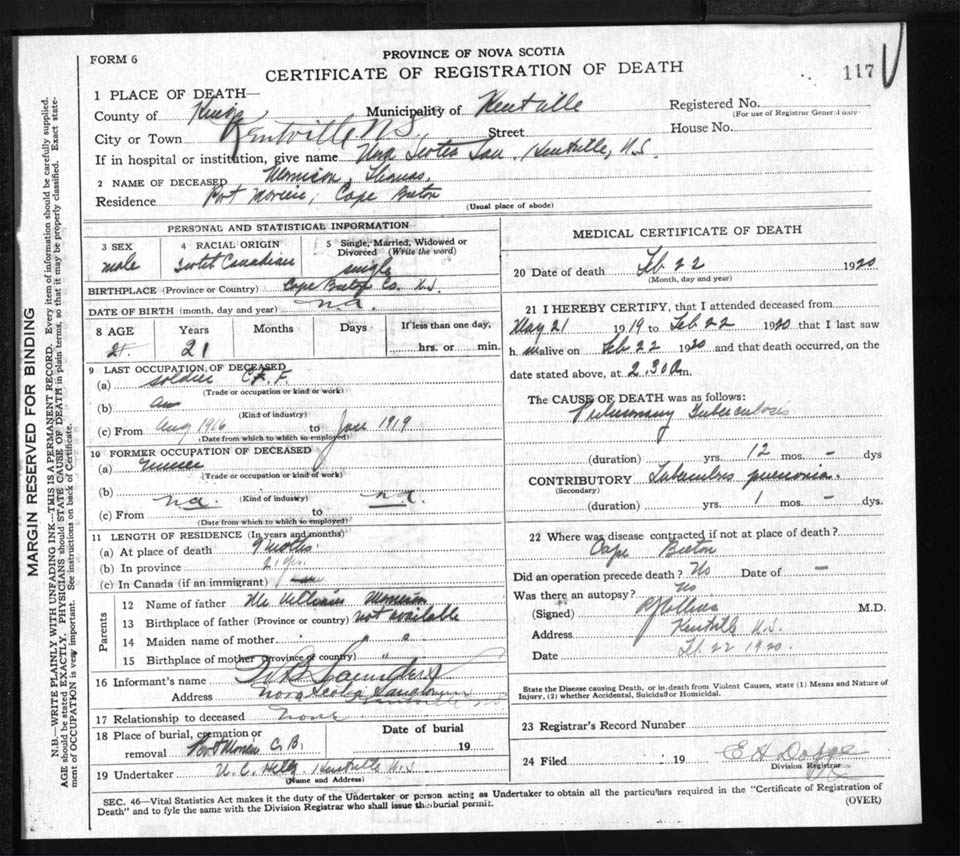 FORM 6
PROVINCE OF NOVA SCOTIA
CERTIFICATE OF REGISTRATION OF DEATH
117
1 PLACE OF DEATH—
County of Kings Municipality of Kentville Registered No.
(For use of Registrar General only)
City or Town Kentville N.S. Street House No.
If in hospital or institution, give name Nova Scotia San. Kentville, N.S.
2 NAME OF DECEASED Morrison, Thomas.
Residence Port Morien, Cape Breton
(Usual place of abode)
PERSONAL AND STATISTICAL INFORMATION
3 SEX male
4 RACIAL ORIGIN Scotch Canadian
5 Single, Married, Widowed or Divorced (Write the word) single
BIRTHPLACE (Province or Country) Cape Breton Co. N.S.
DATE OF BIRTH (month, day and year) n.a.
8 AGE Years Months Days If less than one day,
21 hrs. or min.
9 LAST OCCUPATION OF DECEASED
(a) soldier C.E.F.
(Trade or occupation or kind or work)
(b)
(Kind of industry)
(c) From Aug 1916 to Jan 1919
(Date from which to which so employed)
10 FORMER OCCUPATION OF DECEASED
(a)
(Trade or occupation or kind of work)
(b)
(Kind of industry)
(c) From n.a. to n.a.
(Date from which to which so employed)
11 LENGTH OF RESIDENCE (In years and months)
(a) At place of death 9 months.
(b) In province 21 yrs.
(c) In Canada (if an immigrant)
Parents
12 Name of father Mr William Morrison
13 Birthplace of father (Province or country) not available
14 Maiden name of mother " "
15 Birthplace of mother (Province or country) "
16 Informant's name W.B. Saunders
Address Nova Scotia Sanatorium Kentville NS
17 Relationship to deceased none
18 Place of burial, cremation or removal Port Morien C.B.
Date of burial 19
19 Undertaker Kentville N.S
(Name and Address)
MEDICAL CERTIFICATE OF DEATH
20 Date of death Feb 22 1920
(Month, day and year)
21 I HEREBY CERTIFY, that I attended deceased from
May 21 1919 to Feb 22 1920 that I last saw
h im alive on Feb 22 1920 and that death occurred, on the
date stated above, at 2.30 a m.
The CAUSE OF DEATH was as follows:
Pulmonary Tuberculosis
(duration) yrs. 12 mos. – dys
CONTRIBUTORY Tuberculous pneumonia.
(Secondary)
(duration) yrs. 1 mos. – dys.
22 Where was disease contracted if not at place of death?
Cape Breton
Did an operation precede death? No Date of –
Was there an autopsy? No
(Signed) M.D.
Address Kentville N.S.
Date Feb 22 1920.
State the Disease causing Death, or in death from Violent Causes, state (1) Means and Nature of Injury, and (2) whether Accidental, Suicidal or Homicidal.
23 Registrar's Record Number
24 Filed 19
Division Registrar
SEC. 46—Vital Statistics Act makes it the duty of the Undertaker or person acting as Undertaker to obtain all the particulars required in the "Certificate of Registration of
Death" and to fyle the same with the Division Registrar who shall issue the burial permit. (OVER)
MARGIN RESERVED FOR BINDING
N.B.—WRITE PLAINLY WITH UNFADING INK—THIS IS A PERMANENT RECORD. Every item of information should be carefully supplied.
AGE should be stated EXACTLY. PHYSICIANS should STATE CAUSE OF DEATH in plain terms, so that it may be properly classified. Exact state-
ment of OCCUPATION is very important. See instructions on back of Certificate.